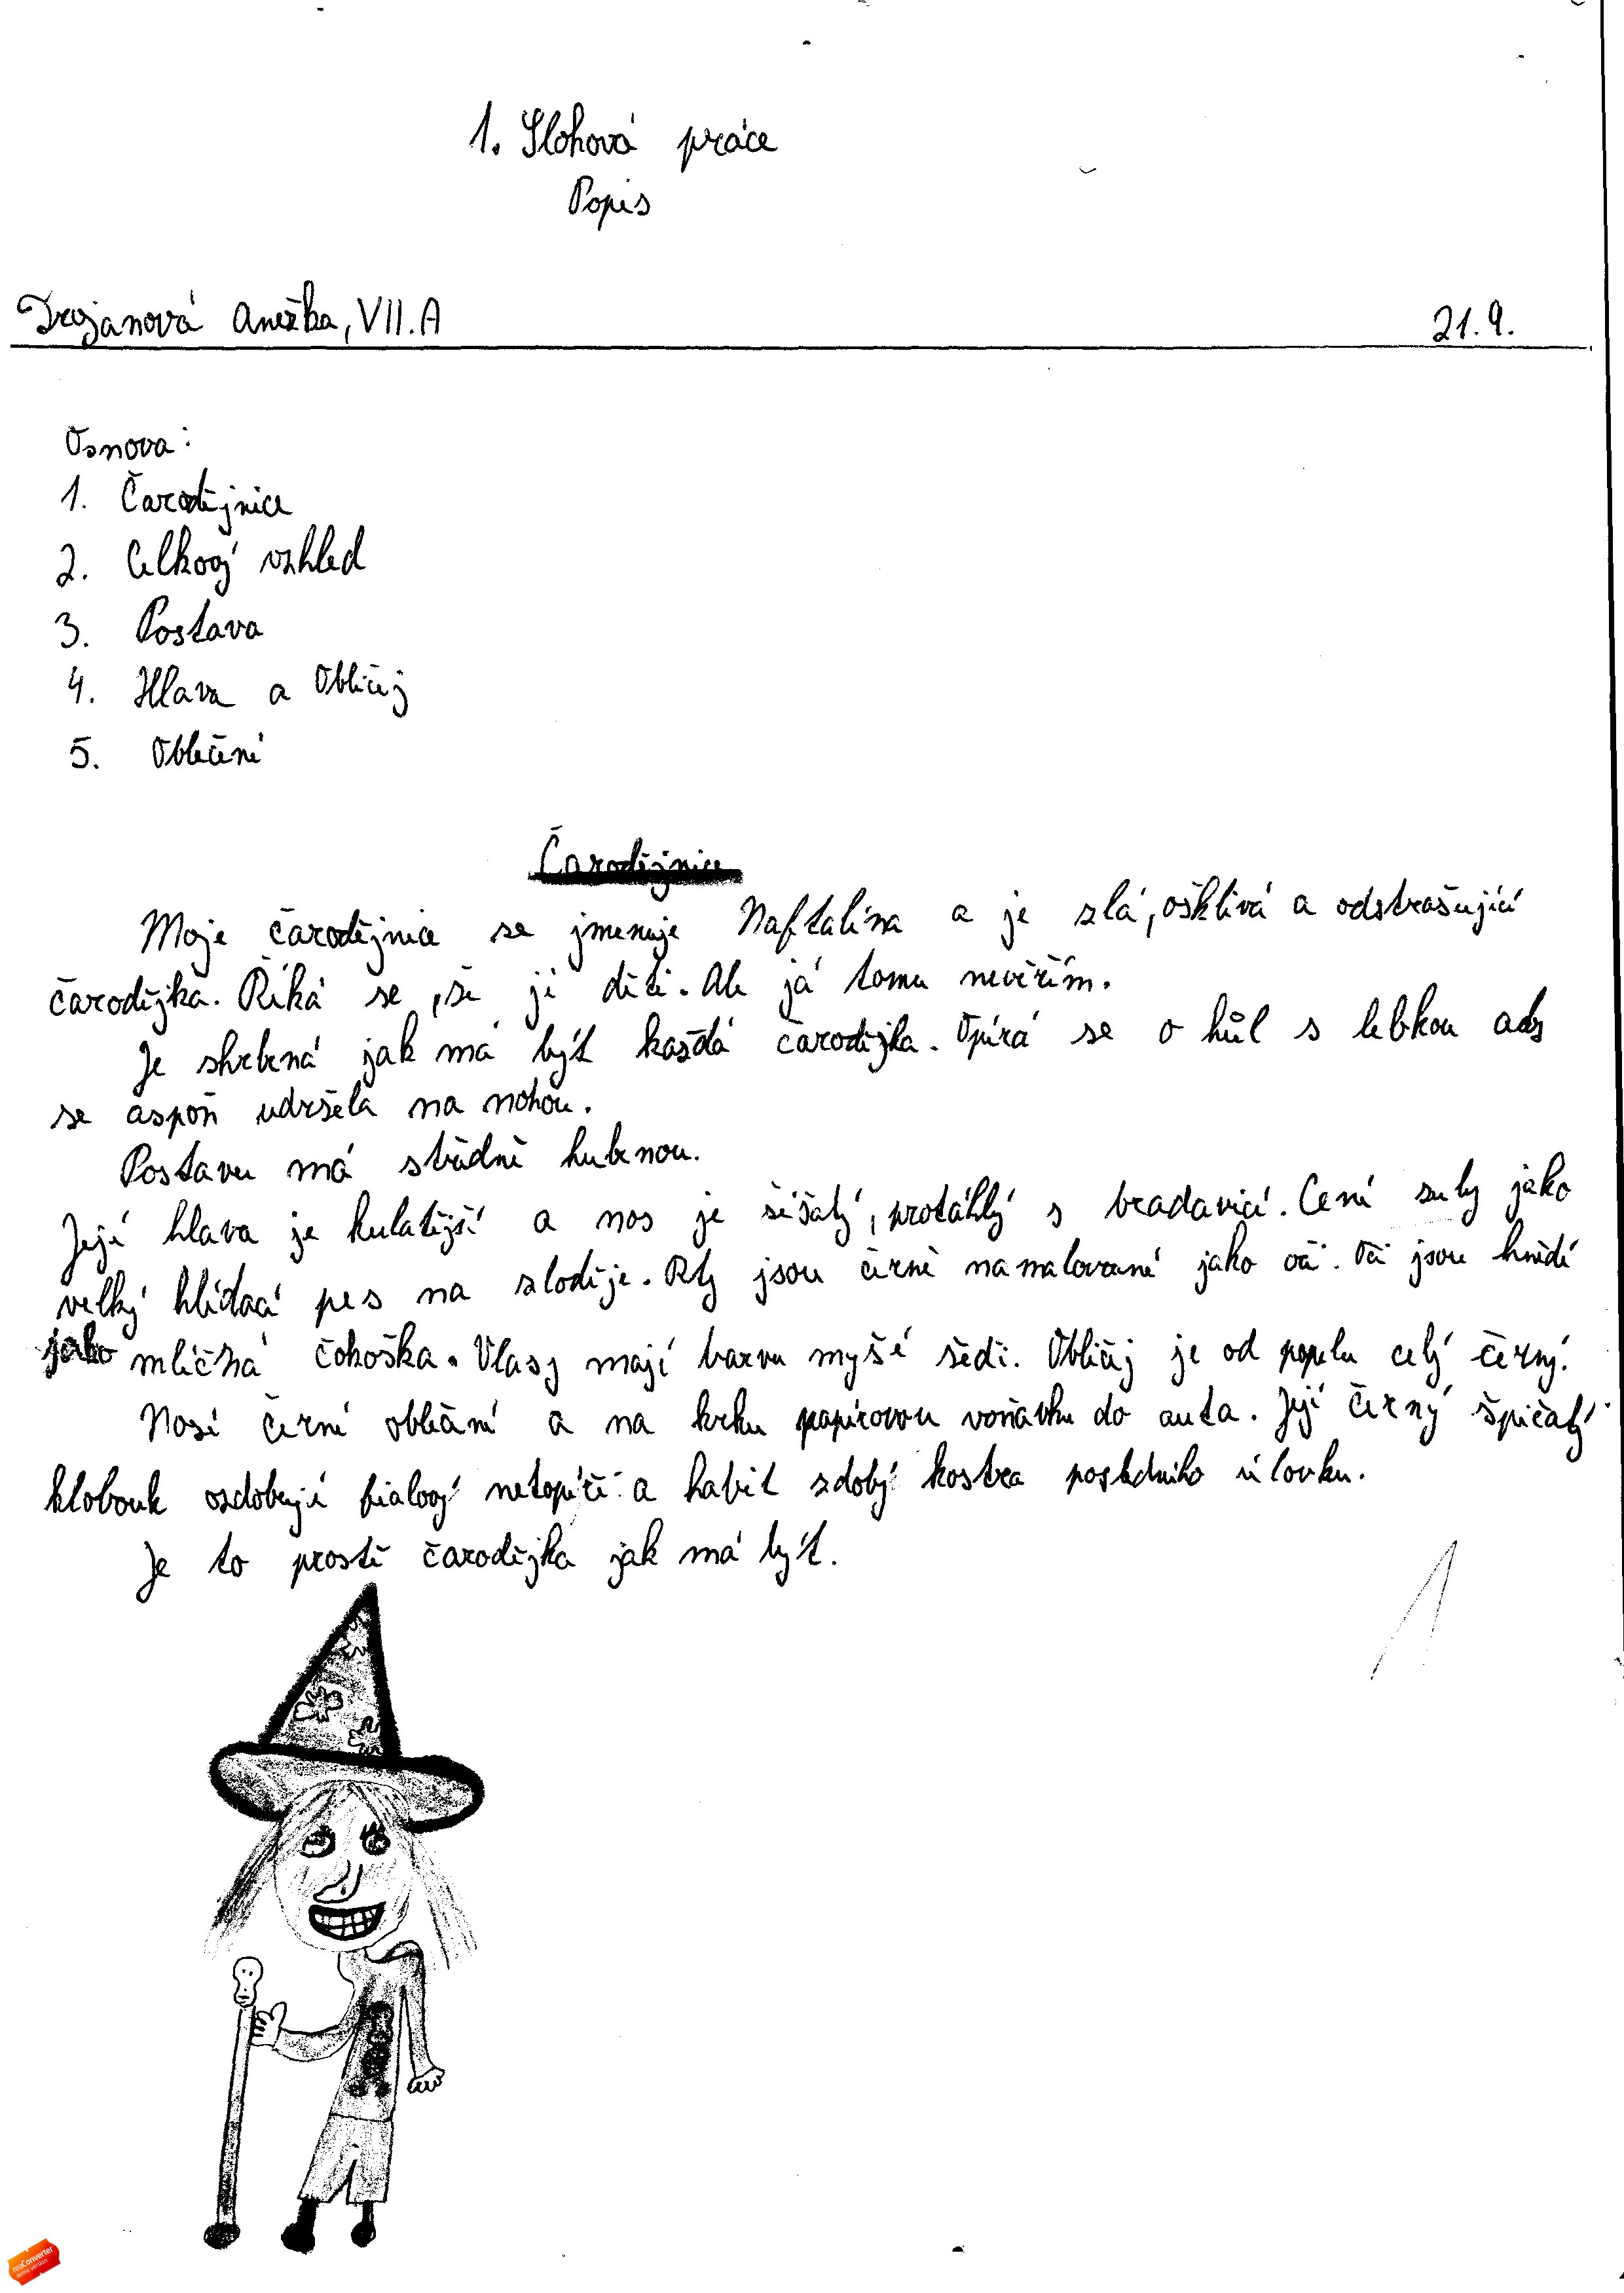 1. Slohová práce
Popis
Trojanová Anežka, VII.A 21.9.
Osnova:
1. Čarodějnice
2. Celkový vzhled
3. Postava
4. Hlava a Obličej
5. Oblečení
Čarodějnice
Moje čarodějnice se jmenuje Naftalína a je zlá, ošklivá a odstrašující
čarodějka. Říká se, že jí děti. Ale já tomu nevěřím.
Je shrbená jak má být každá čarodějka. Opírá se o hůl s lebkou aby
se aspoň udržela na nohou.
Postavu má střědně hubenou.
Její hlava je kulatější a nos je šišatý, protáhlý s bradavicí. Cení zuby jako
velký hlídací pes na zloděje. Rty jsou černě namalované jako oči. Oči jsou hnědé
jako mléčná čokoška. Vlasy mají barvu myší šedi. Obličej je od popelu celý černý.
Nosí černé oblečení a na krku papírovou voňavku do auta. Její černý špičatý
klobouk ozdobují fialový netopýři a habit zdobý kostra posledního úlovku.
Je to prostě čarodějka jak má být.
1
reaConverter
demo version